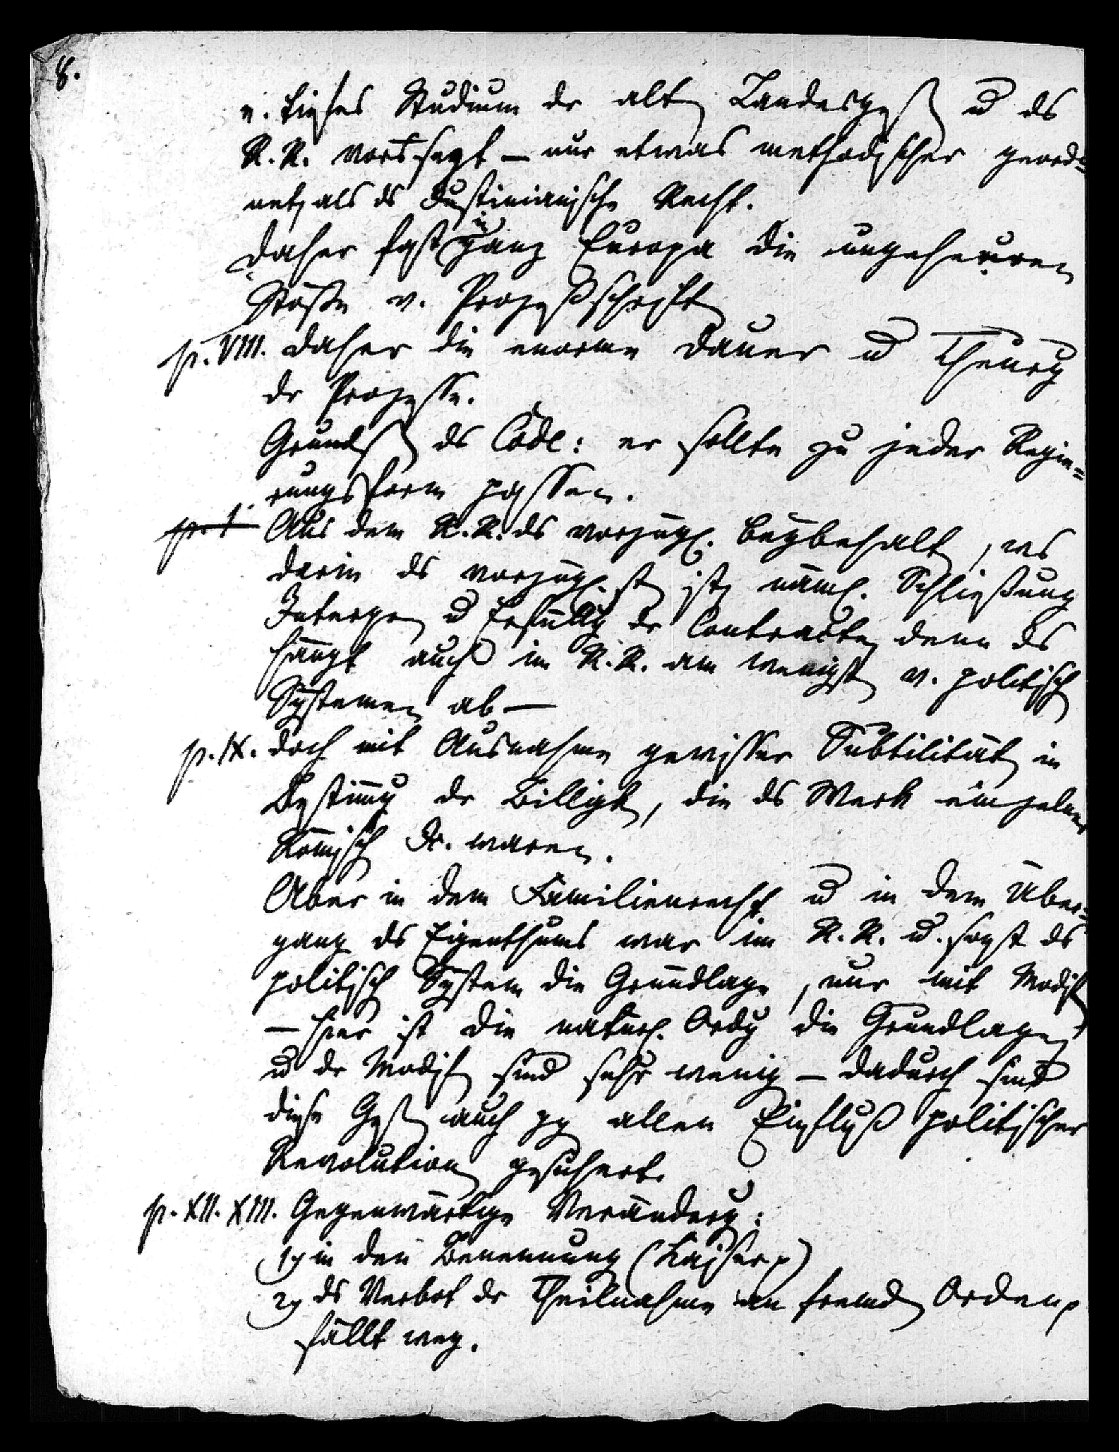 8.
v. tiefes Studium dr alt Landesges u ds
R. R. vorts sezt — nur etwas methodischer geord=
net als ds Justinianische Recht.
Daher fast in ganz Europa die ungeheuren
Stöße v. Prozeßschrift
p. VIII. daher die enorme Dauer u Theurg
dr Prozesse.
Grunds ds Code: er sollte zu jeder Regie=
rungsform passen.
Aus dem R. R. ds vorzügl. beybehalt, was
darin ds vorzügl.st ist, näml. Schließung
Interpr u Erfüllg dr Contracte, denn ds
hängt auch im R. R. am wenigst v. politisch
Systemen ab —
p. IX. doch mit Ausnahme gewisser Subtilität in
Bestimmg dr Billigk, die ds Werk einzelner
Römisch waren.
Aber in dem Familienrecht u in dem Über=
gang ds Eigenthums war im R. R. u. sonst ds
politisch System die Grundlage, nur mit Modif
— hier ist die natürl. Ordg die Grundlage,
u dr Modif sind sehr wenig — dadurch sind
diese Ges auch gg allen Einfluß politischer
Revolution gesichert.
p. XII. XIII. Gegenwärtige Veränderg:
1) in den Benennung (Kaiser)
2) ds Verbot dr Theilnahme an fremd Orden
fällt weg.